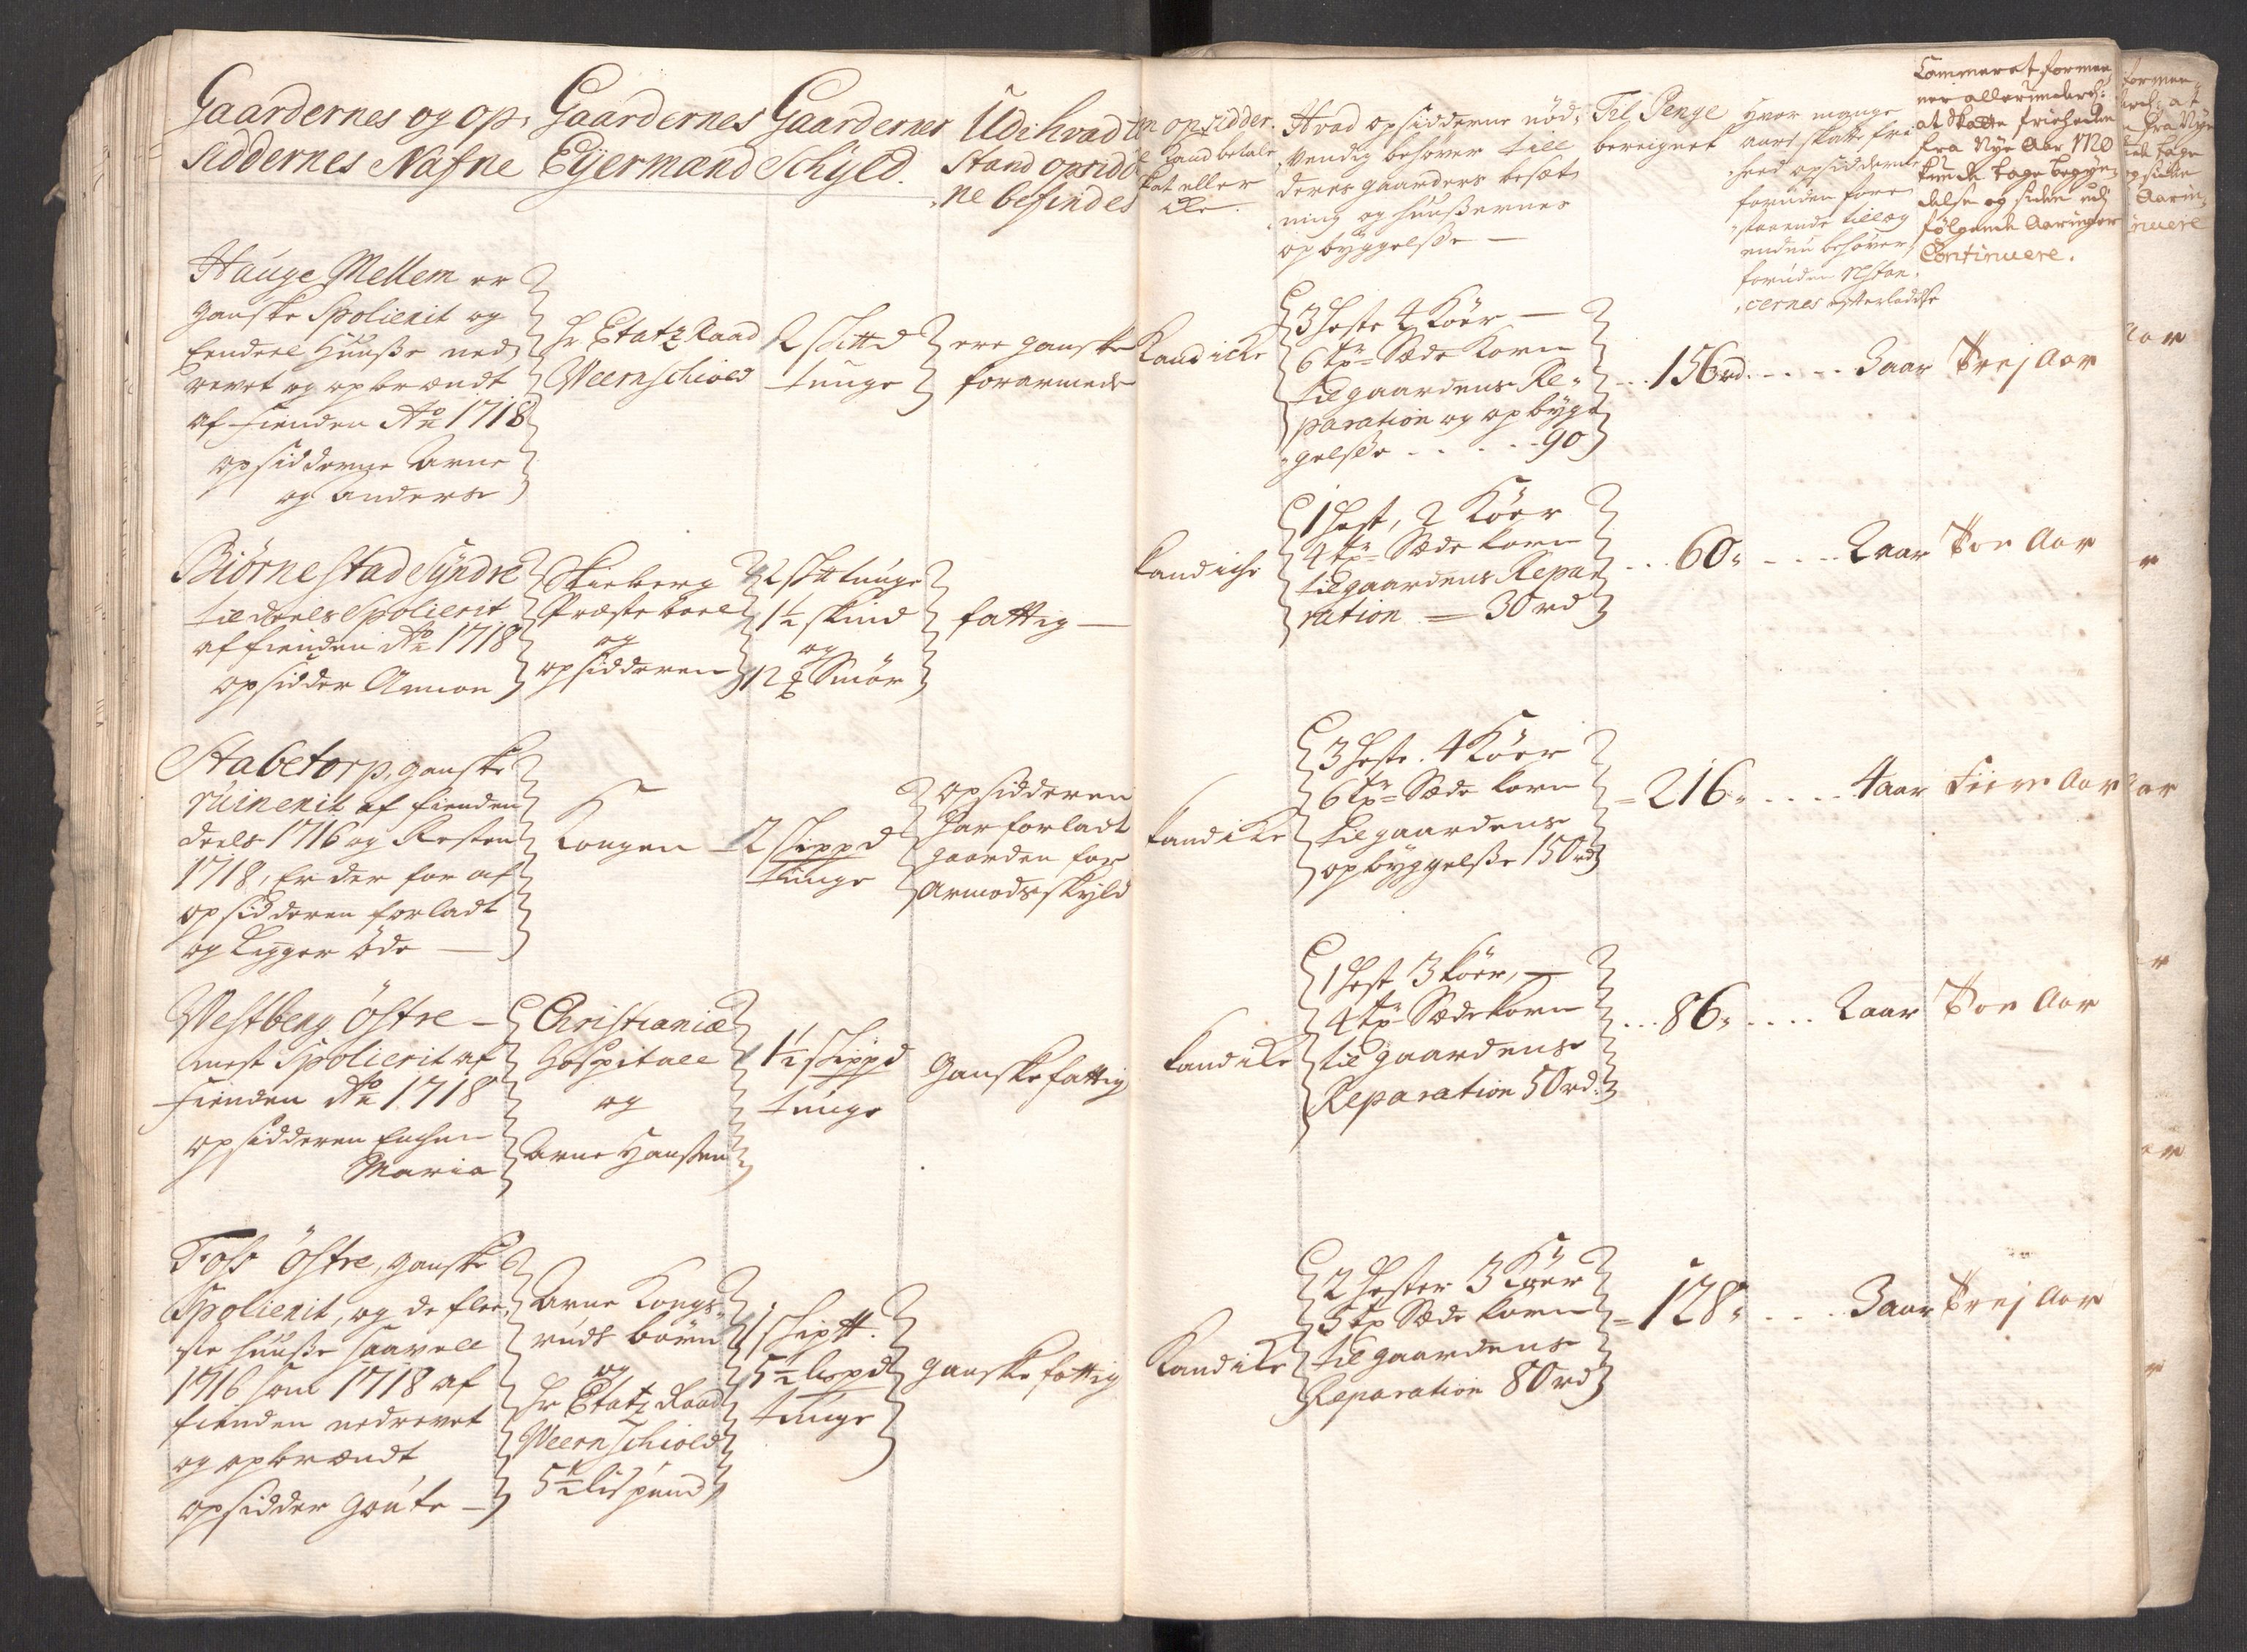 Gaardernes og op-
siddernes Nafne
Gaardernes
Eyermand
Gaardernes
Schyld.
Udi hvad
Stand opsidd
ne befindes
opsidder.
kand betale
skat eller
icke.
Hvad opsidderne nød-
vendig behøver till
deres gaarders besæt
ning og huußernes
opbyggelsse
Til Penge
bereignet
Hvor mange
aars skatte fri
heed opsidderne
foruden fore
staaende till og
endnu behøver
foruden Restan
cernes efterladelse
Cammeret formee
ner allerunderd:
at Skatte friheeden
fra Nye Aar 1720
kunde tage begyn-
delse og siden udj
følgende Aaringer
Continuere.
Hauge Mellem er
ganske Spolierit og
Eendeel Huuße ned
revet og opbrændt
af fienden Ao 1718
opsidderne Arne
og Anders
Hr Etatz Raad
Weernschiold
2 skittd
tunge
ere ganske
forarmede
Kand icke
3 Heste 4 Kiøer
6 tr Sæde Korn
til gaardens Re-
paration og opbyg
gelsse . . . . 90
156 rd.
3 aar
Trej Aar
Biørnestad Syndre
til deels Spolierit
af fienden Ao 1718
opsidder Amon
Skieberg
Præsteboel
og
opsidderen
2 sktt tunge
1½ skind
og
12 Smør
fattig
kand iche
1 Hest, 2 Kiøer
4 tr Sæde korn
til gaardens Repa
ration = 30 rd
60
2 aar
Toe Aar
Stabetorp, ganske
ruinerit af fienden
deels 1716 og Resten
1718, Er der for af
opsidderen forladt
og Ligger øde
Kongen
2 skippd
tunge
opsidderen
har forladt
gaarden for
armods skyld
kand icke
3 Heste. 4 Kiøer
6 tr Sæde korn
til gaardens
opbyggelsse 150 rd
216
4 aar
Fiire Aar
Westberg Østre
mest Spolierit af
fienden Ao 1718
opsidderen Enchen
Maria
Christianiæ
Hospitall
og
Arne Hanssen
1½ skippd
tunge
Ganske fattig
kand icke
1 Hest 3 kiøer,
4 tr Sæde korn
til gaardens
Reparation 50 rd.
86
2 aar
Toe Aar
Foss Østre, ganske
Spolierit, og de flee-
ste huuße saavell
1716 som 1718 af
fienden nedrevet
og opbrændt
opsidder Goute
Arne Kongs-
ruds børn
og
Hr Etatz Raad
Weernschiold
5½ Lispund
1 skiptt.
5½ lispd
tunge
ganske fattig
Kand icke
2 Hester 3 Kiøer
5 tr Sæde korn
til gaardens
Reparation 80 rd
128
3 aar
Trej Aar